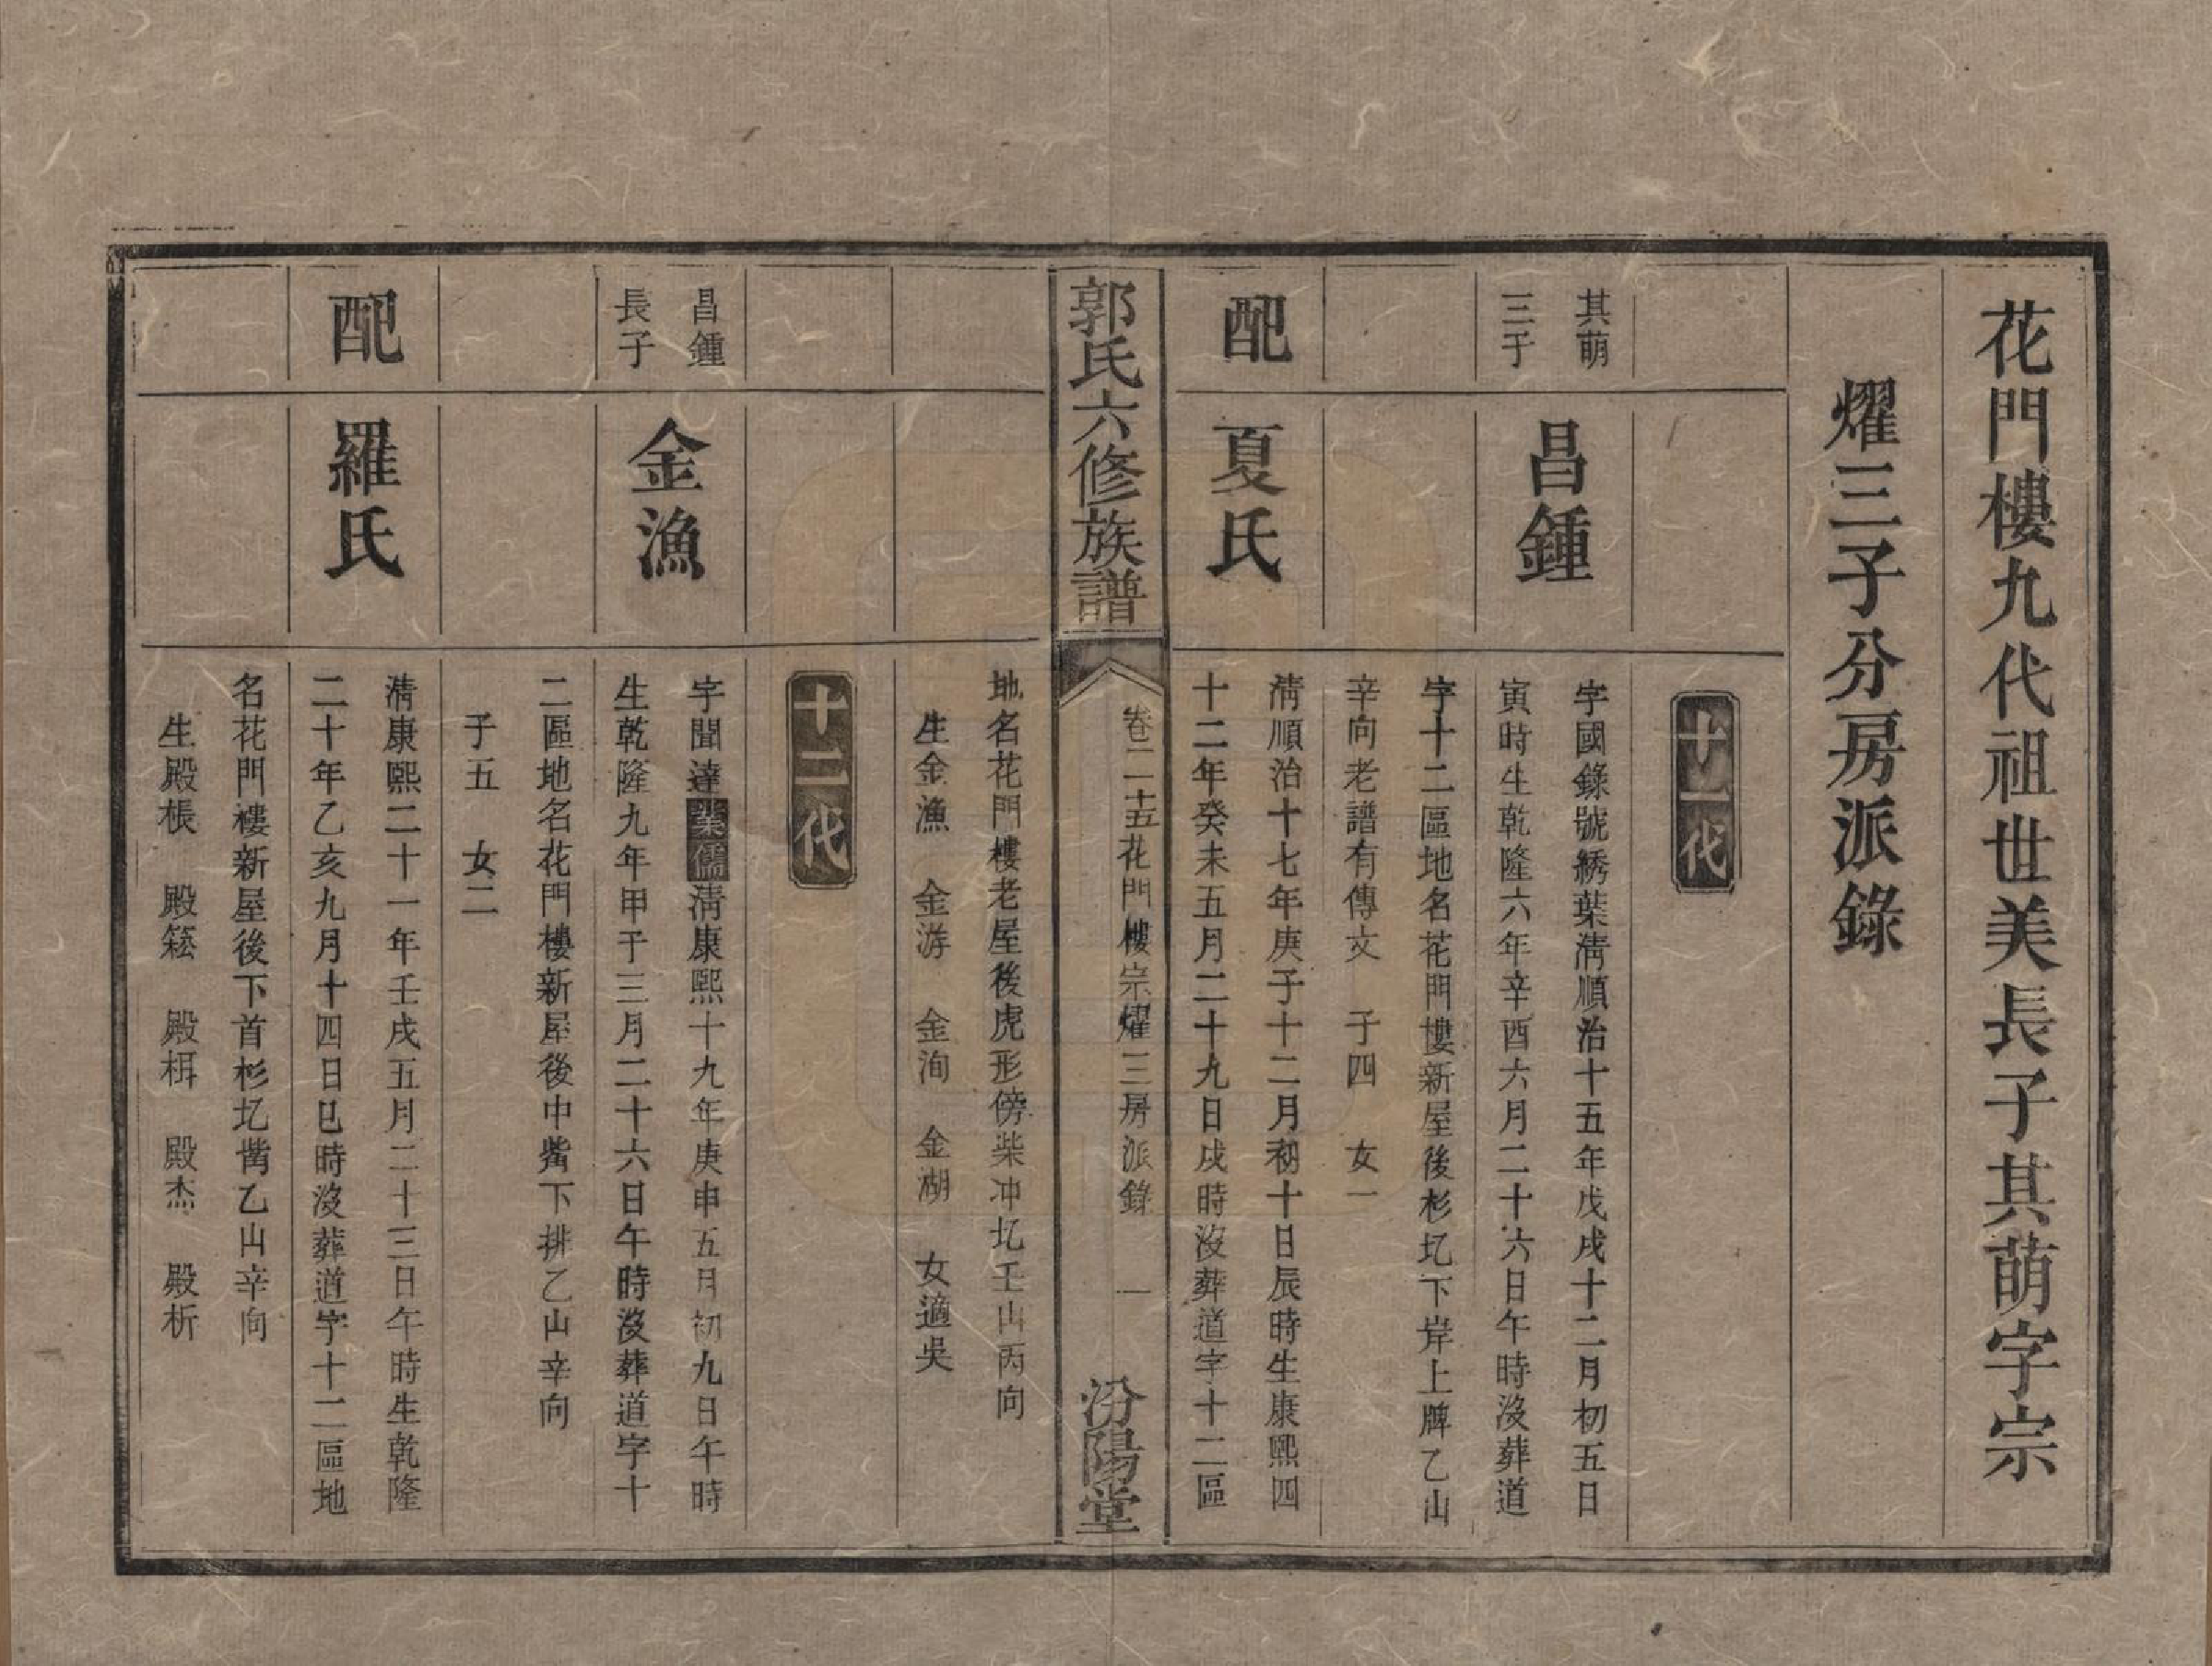 花門樓九代祖世美長子其萌字宗
耀三子分房派錄
十一代
其萌
三子
昌鍾
字國錄號綉葉淸順治十五年戊戌十二月初五日
寅時生乾隆六年辛酉六月二十六日午時沒葬道
字十二區地名花門樓新屋後杉圠下岸上牌乙山
辛向老譜有傳文　子四　女一
配
夏氏
淸順治十七年庚子十二月初十日辰時生康熙四
十二年癸未五月二十九日戌時沒葬道字十二區
郭氏六修族譜
卷二十五花門樓宗耀三房派錄
一
汾陽堂
地名花門樓老屋後虎形傍柴冲圠壬山丙向
生金漁　金游　金洵　金湖　女適吳
十二代
昌鍾
長子
金漁
字聞達業儒淸康熙十九年庚申五月初九日午時
生乾隆九年甲子三月二十六日午時沒葬道字十
二區地名花門樓新屋後中觜下排乙山辛向
子五　女二
配
羅氏
淸康熙二十一年壬戌五月二十三日午時生乾隆
二十年乙亥九月十四日巳時沒葬道字十二區地
名花門樓新屋後下首杉圠凿乙山辛向
生殿梖　殿箖　殿栮　殿杰　殿析